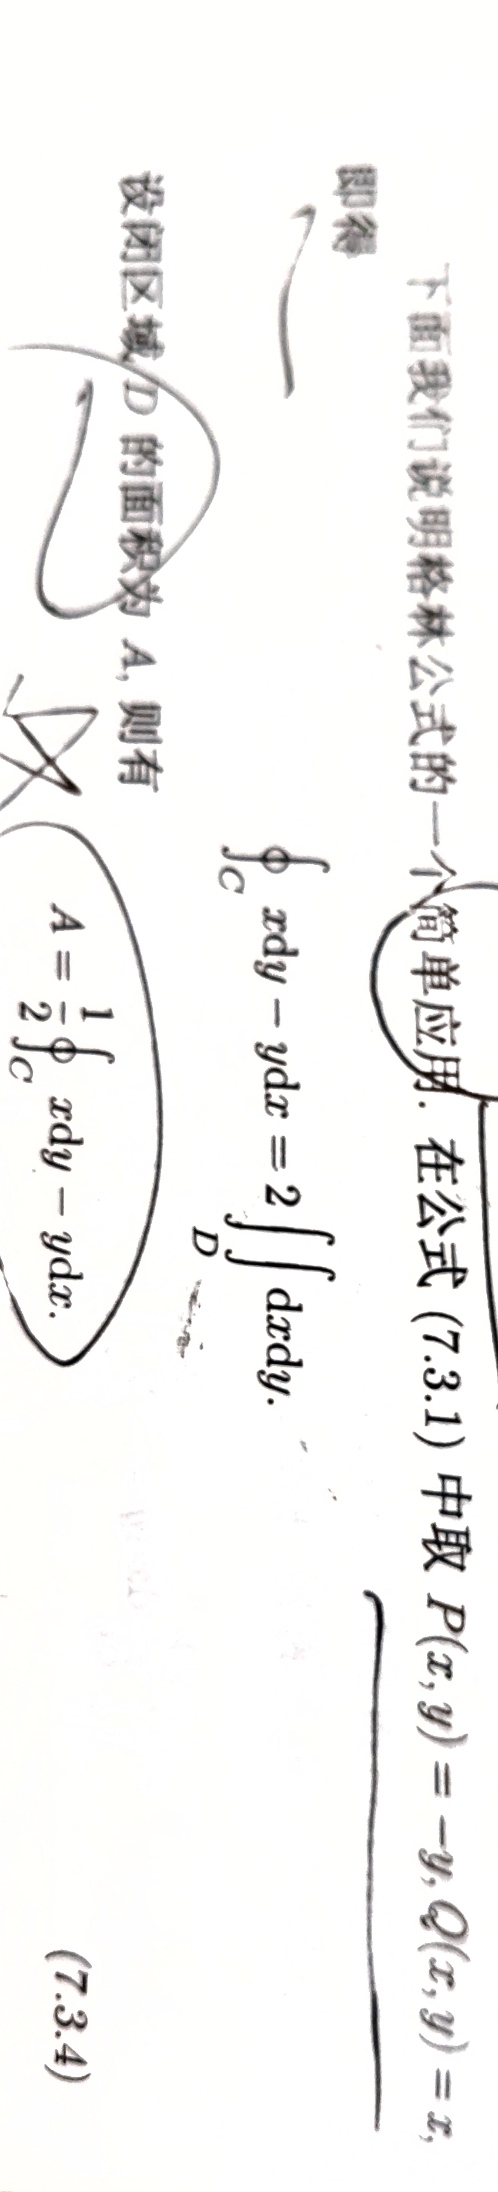 下面我们说明格林公式的一个简单应用. 在公式 (7.3.1) 中取 P(x, y) = −y, Q(x, y) = x,
即得
∮_C xdy − ydx = 2∬_D dxdy.
设闭区域 D 的面积为 A, 则有
A = 1/2 ∮_C xdy − ydx. (7.3.4)